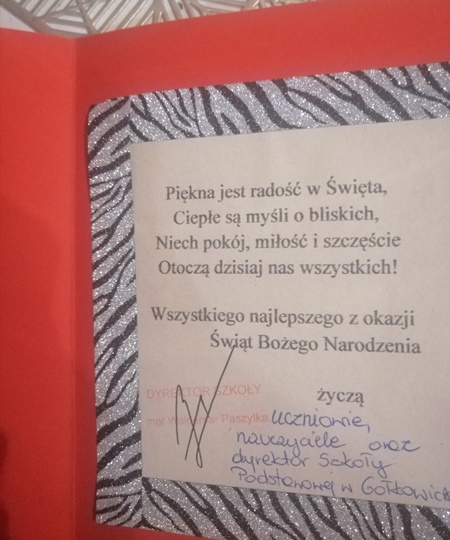 Piękna jest radość w Święta,
Ciepłe są myśli o bliskich,
Niech pokój, miłość i szczęście
Otoczą dzisiaj nas wszystkich!
Wszystkiego najlepszego z okazji
Świąt Bożego Narodzenia
życzą
DYREKTOR SZKOŁY
mgr Waldemar Paszylka
uczniowie,
nauczyciele oraz
dyrektor Szkoły
Podstawowej w Gołkowicach